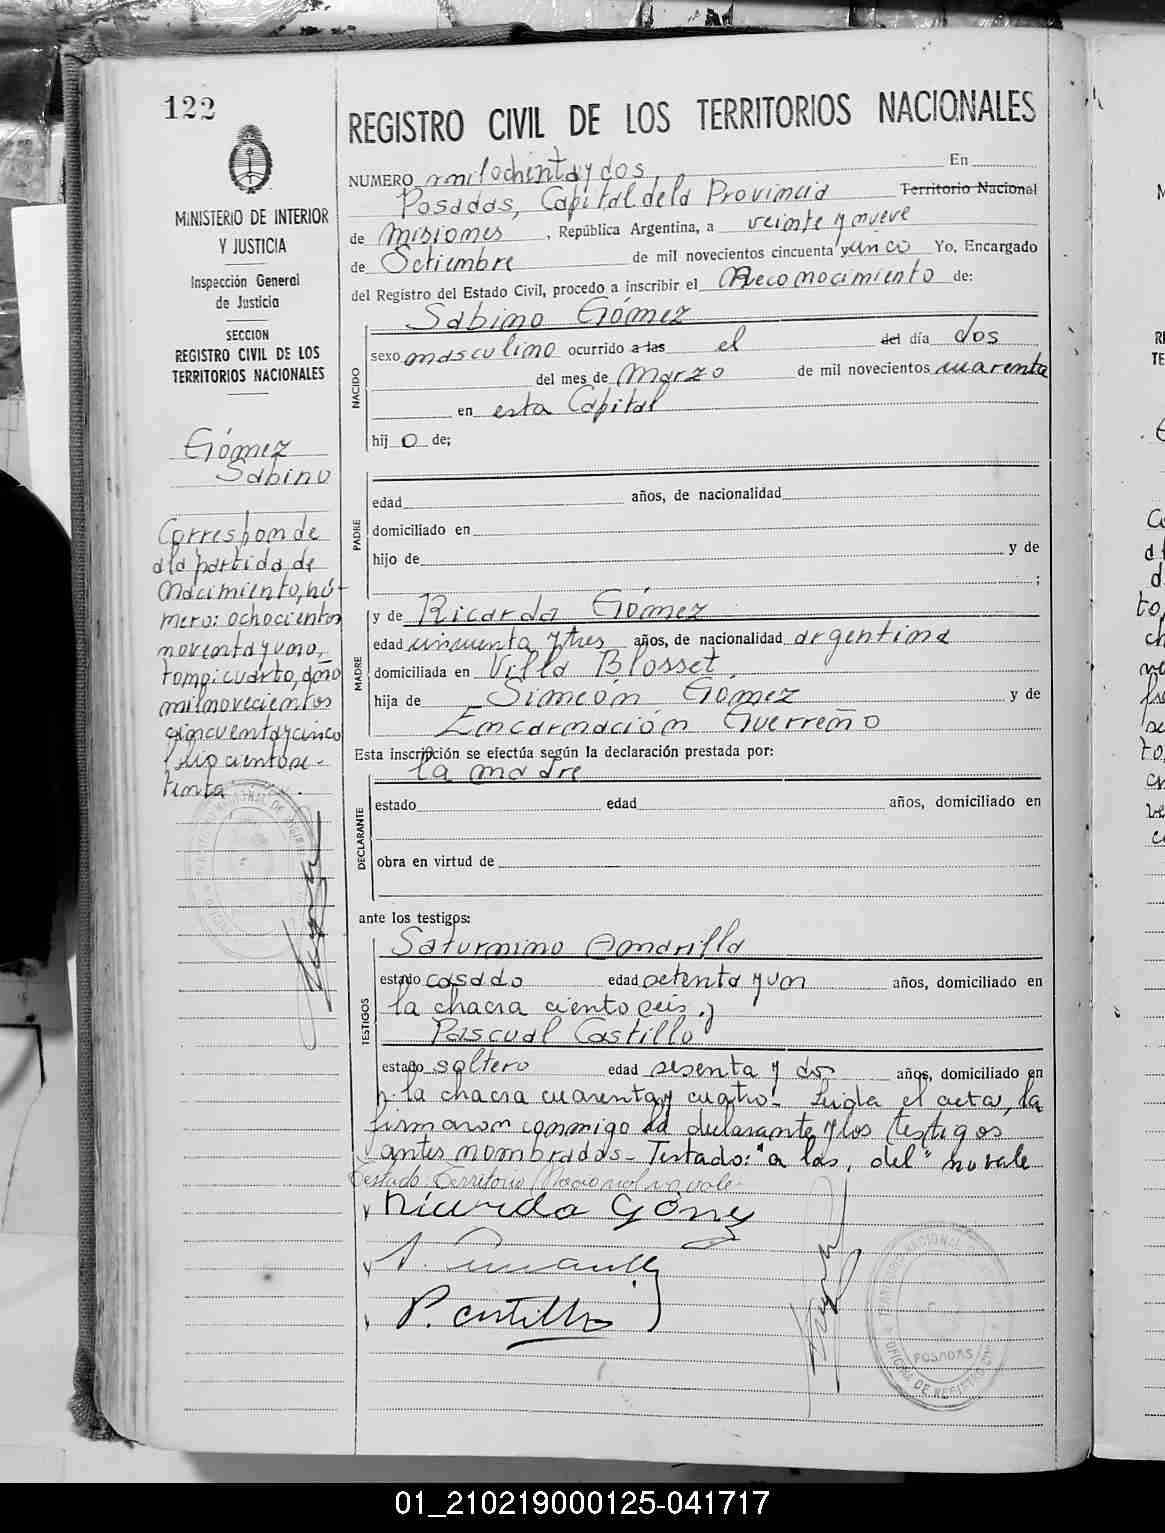 122
REGISTRO CIVIL DE LOS TERRITORIOS NACIONALES
MINISTERIO DE INTERIOR
Y JUSTICIA
Inspección General
de Justicia
SECCION
REGISTRO CIVIL DE LOS
TERRITORIOS NACIONALES
Gómez
Sabino
Corresponde
a la partida de
nacimiento, nú-
mero: ochocientos
noventa y uno,
tomo: cuarto, año
mil novecientos
cincuenta y cinco
folio ciento se-
tenta
NUMERO mil ochenta y dos, En
Posadas, Capital de la Provincia Territorio Nacional
de Misiones, República Argentina, a veinte y nueve
de Setiembre de mil novecientos cincuenta y cinco Yo, Encargado
del Registro del Estado Civil, procedo a inscribir el Reconocimiento de:
Sabino Gómez
NACIDO
sexo masculino ocurrido a las el del día dos
del mes de Marzo de mil novecientos cuarenta
en esta Capital
hijo de;
PADRE
edad años, de nacionalidad
domiciliado en
hijo de y de
;
MADRE
y de Ricarda Gómez
edad cincuenta y tres años, de nacionalidad argentina
domiciliada en Villa Blosset,
hija de Simeón Gómez y de
Encarnación Guerreño
Esta inscripción se efectúa según la declaración prestada por:
la madre
DECLARANTE
estado edad años, domiciliado en
obra en virtud de
ante los testigos:
TESTIGOS
Saturnino Amarilla
estado casado edad setenta y un años, domiciliado en
la chacra ciento seis. y
Pascual Castillo
estado soltero edad sesenta y dos años, domiciliado en
la chacra cuarenta y cuatro.- Leída el acta, la
firmaron conmigo la declarante y los testigos
antes nombrados.- Testado: "a las, del" no vale
Testado: Territorio Nacional no vale-
Ricarda Gómez
P. Castillo
POSADAS
01_210219000125-041717